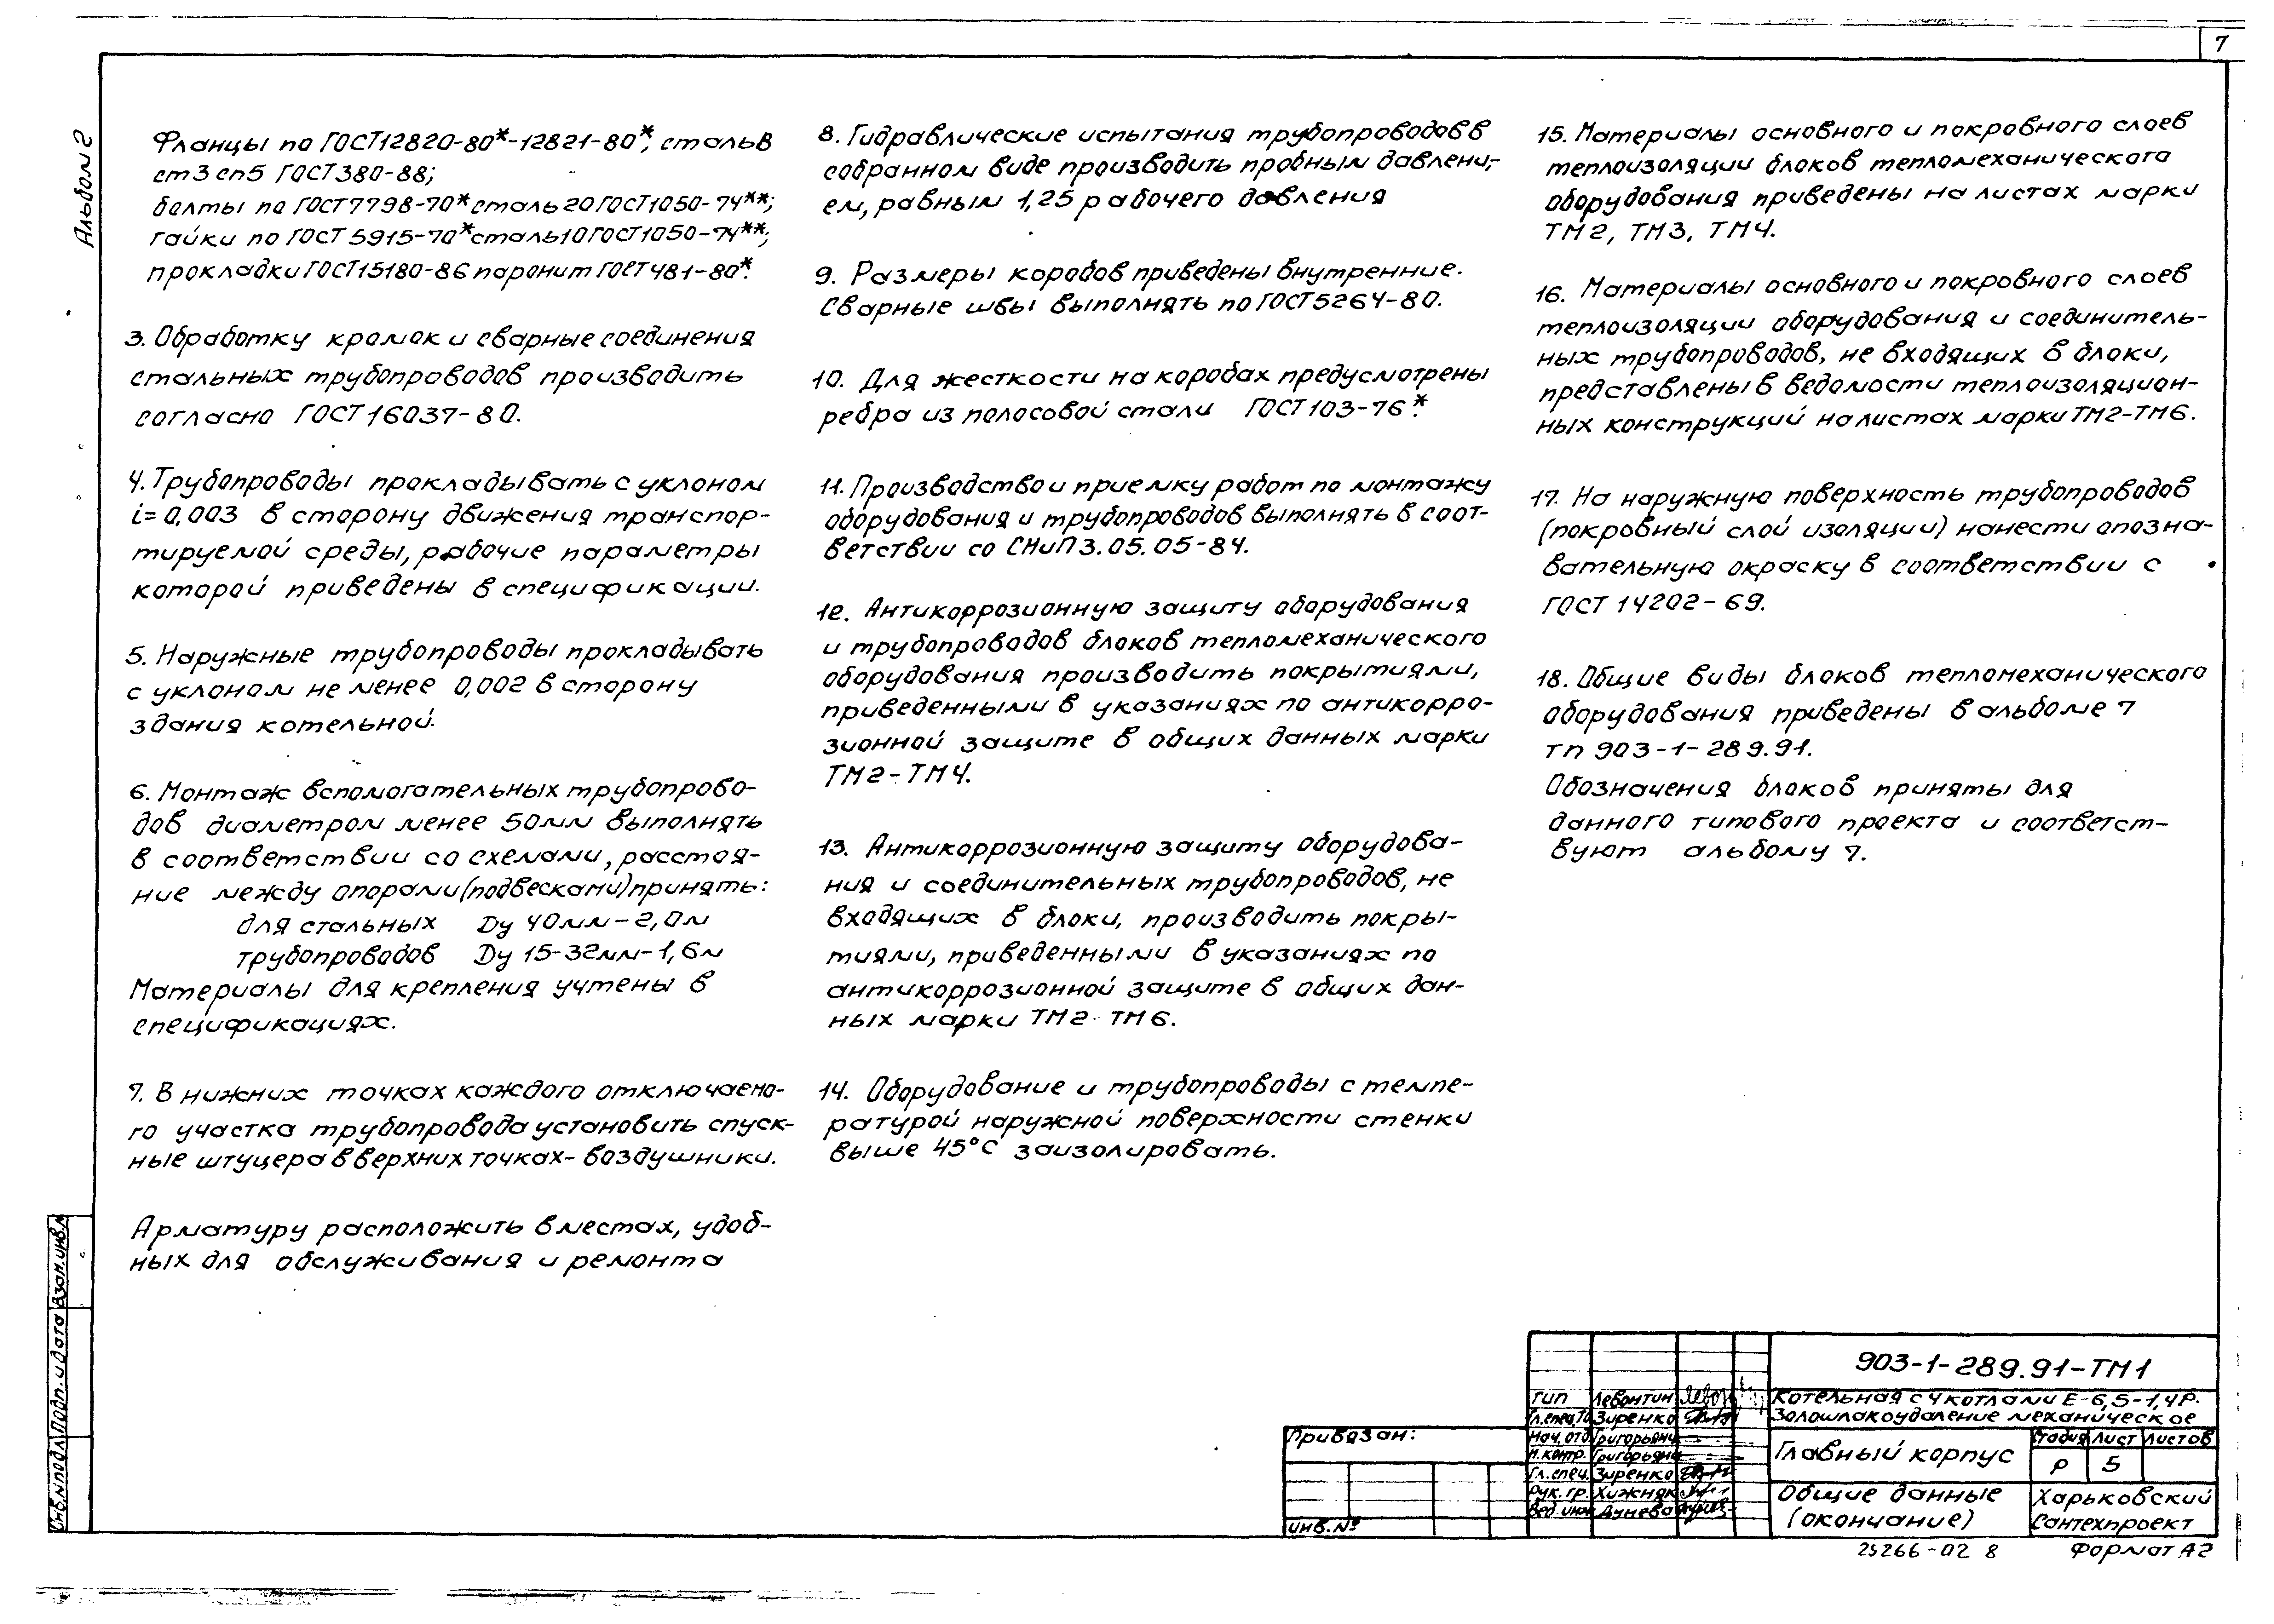 7
Альбом 2
Фланцы по ГОСТ12820-80*-12821-80*, сталь В
ст3 сп5 ГОСТ380-88;
болты по ГОСТ7798-70* сталь 20 ГОСТ1050-74**;
гайки по ГОСТ5915-70* сталь10 ГОСТ1050-74**;
прокладки ГОСТ15180-86 паронит ГОСТ481-80*.
3. Обработку кромок и сварные соединения
стальных трубопроводов производить
согласно ГОСТ16037-80.
4. Трубопроводы прокладывать с уклоном
i=0,003 в сторону движения транспор-
тируемой среды, рабочие параметры
которой приведены в спецификации.
5. Наружные трубопроводы прокладывать
с уклоном не менее 0,002 в сторону
здания котельной.
6. Монтаж вспомогательных трубопрово-
дов диаметром менее 50мм выполнять
в соответствии со схемами, расстоя-
ние между опорами (подвесками) принять:
для стальных Ду 40мм-2,0м
трубопроводов Ду 15-32мм-1,6м
Материалы для крепления учтены в
спецификациях.
7. В нижних точках каждого отключаемо-
го участка трубопровода установить спуск-
ные штуцера в верхних точках- воздушники.
Арматуру расположить в местах, удоб-
ных для обслуживания и ремонта
8. Гидравлические испытания трубопроводов в
собранном виде производить пробным давлени-
ем, равным 1,25 рабочего давления
9. Размеры коробов приведены внутренние.
Сварные швы выполнять по ГОСТ5264-80.
10. Для жесткости на коробах предусмотрены
ребра из полосовой стали ГОСТ103-76*.
11. Производство и приемку работ по монтажу
оборудования и трубопроводов выполнять в соот-
ветствии со СНиП 3.05.05-84.
12. Антикоррозионную защиту оборудования
и трубопроводов блоков тепломеханического
оборудования производить покрытиями,
приведенными в указаниях по антикорро-
зионной защите в общих данных марки
ТМ2-ТМ4.
13. Антикоррозионную защиту оборудова-
ния и соединительных трубопроводов, не
входящих в блоки, производить покры-
тиями, приведенными в указаниях по
антикоррозионной защите в общих дан-
ных марки ТМ2-ТМ6.
14. Оборудование и трубопроводы с темпе-
ратурой наружной поверхности стенки
выше 45°С заизолировать.
15. Материалы основного и покровного слоев
теплоизоляции блоков тепломеханического
оборудования приведены на листах марки
ТМ2, ТМ3, ТМ4.
16. Материалы основного и покровного слоев
теплоизоляции оборудования и соединитель-
ных трубопроводов, не входящих в блоки,
представлены в ведомости теплоизоляцион-
ных конструкций на листах марки ТМ2-ТМ6.
17. На наружную поверхность трубопроводов
(покровный слой изоляции) нанести опозна-
вательную окраску в соответствии с
ГОСТ 14202-69.
18. Общие виды блоков тепломеханического
оборудования приведены в альбоме 7
тп 903-1-289.91.
Обозначения блоков приняты для
данного типового проекта и соответст-
вуют альбому 7.
Инв.№подл. Подп. и дата Взам.инв.№
Привязан:
Инв.№
ГИП Левонтин
Гл.спец.ТО Зиренко
Нач.отд. Григорьянц
Н.контр. Григорьянц
Гл.спец. Зиренко
Рук.гр. Хижняк
Вед.инж. Дунева
903-1-289.91-ТМ1
Котельная с 4 котлами Е-6,5-1,4Р.
Золошлакоудаление механическое
Главный корпус
Стадия Лист Листов
Р 5
Общие данные
(окончание)
Харьковский
Сантехпроект
25266-02 8 Формат А2